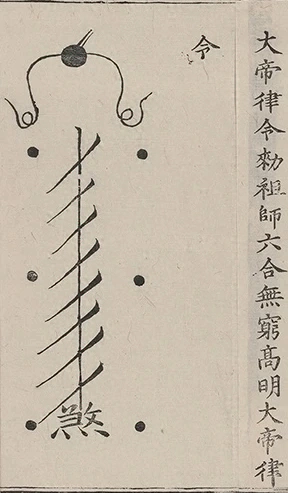 大帝律令勑祖師六合無窮高明大帝律
令
煞